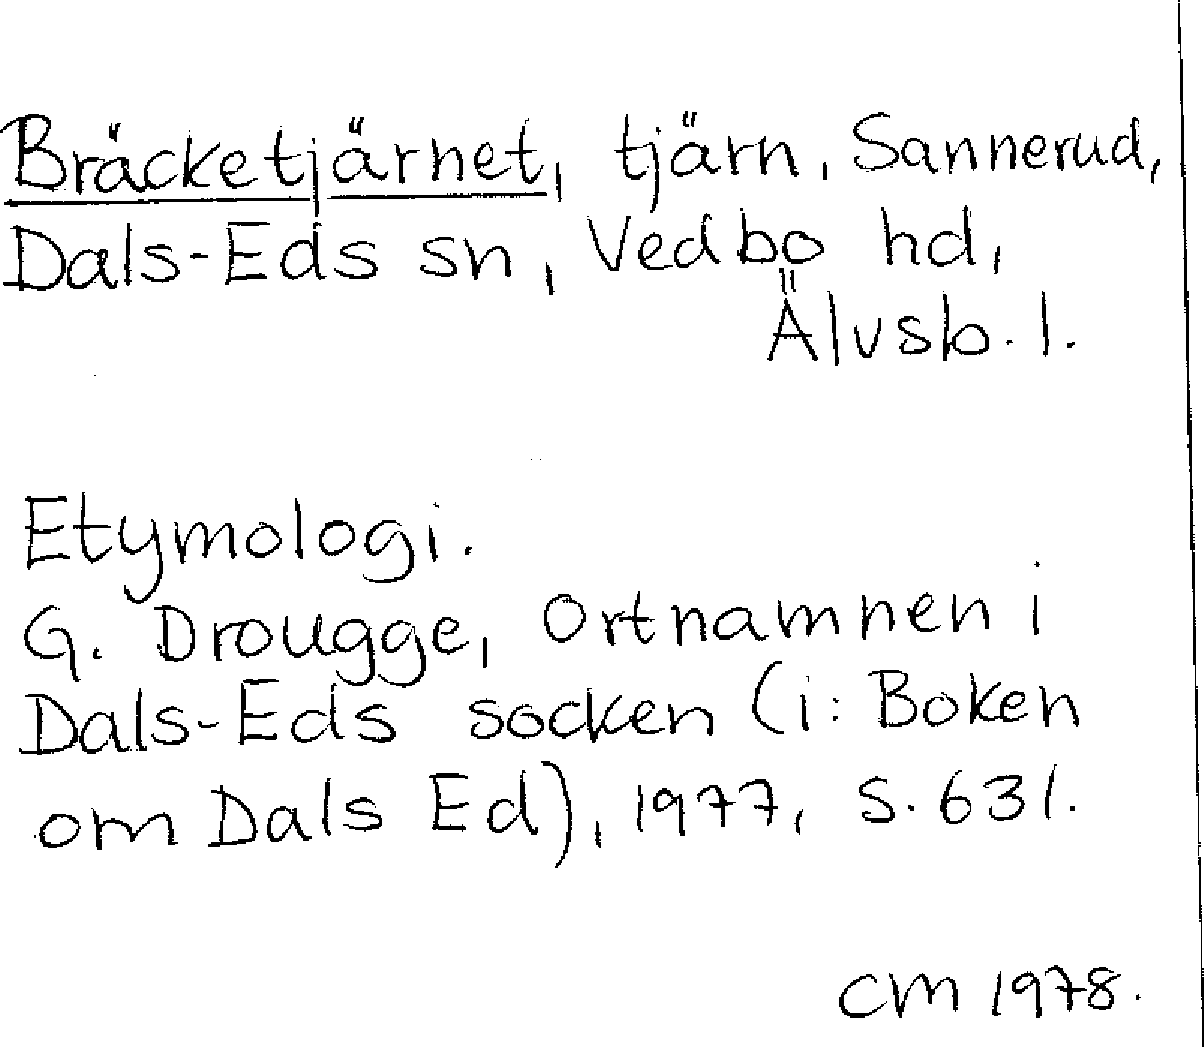 Bräcketjärnet, tjärn, Sannerud,
Dals-Eds sn, Vedbo hd,
Älvsb. l.
Etymologi.
G. Drougge, Ortnamnen i
Dals-Eds socken (i: Boken
om Dals Ed), 1977, s. 631.
CM 1978.